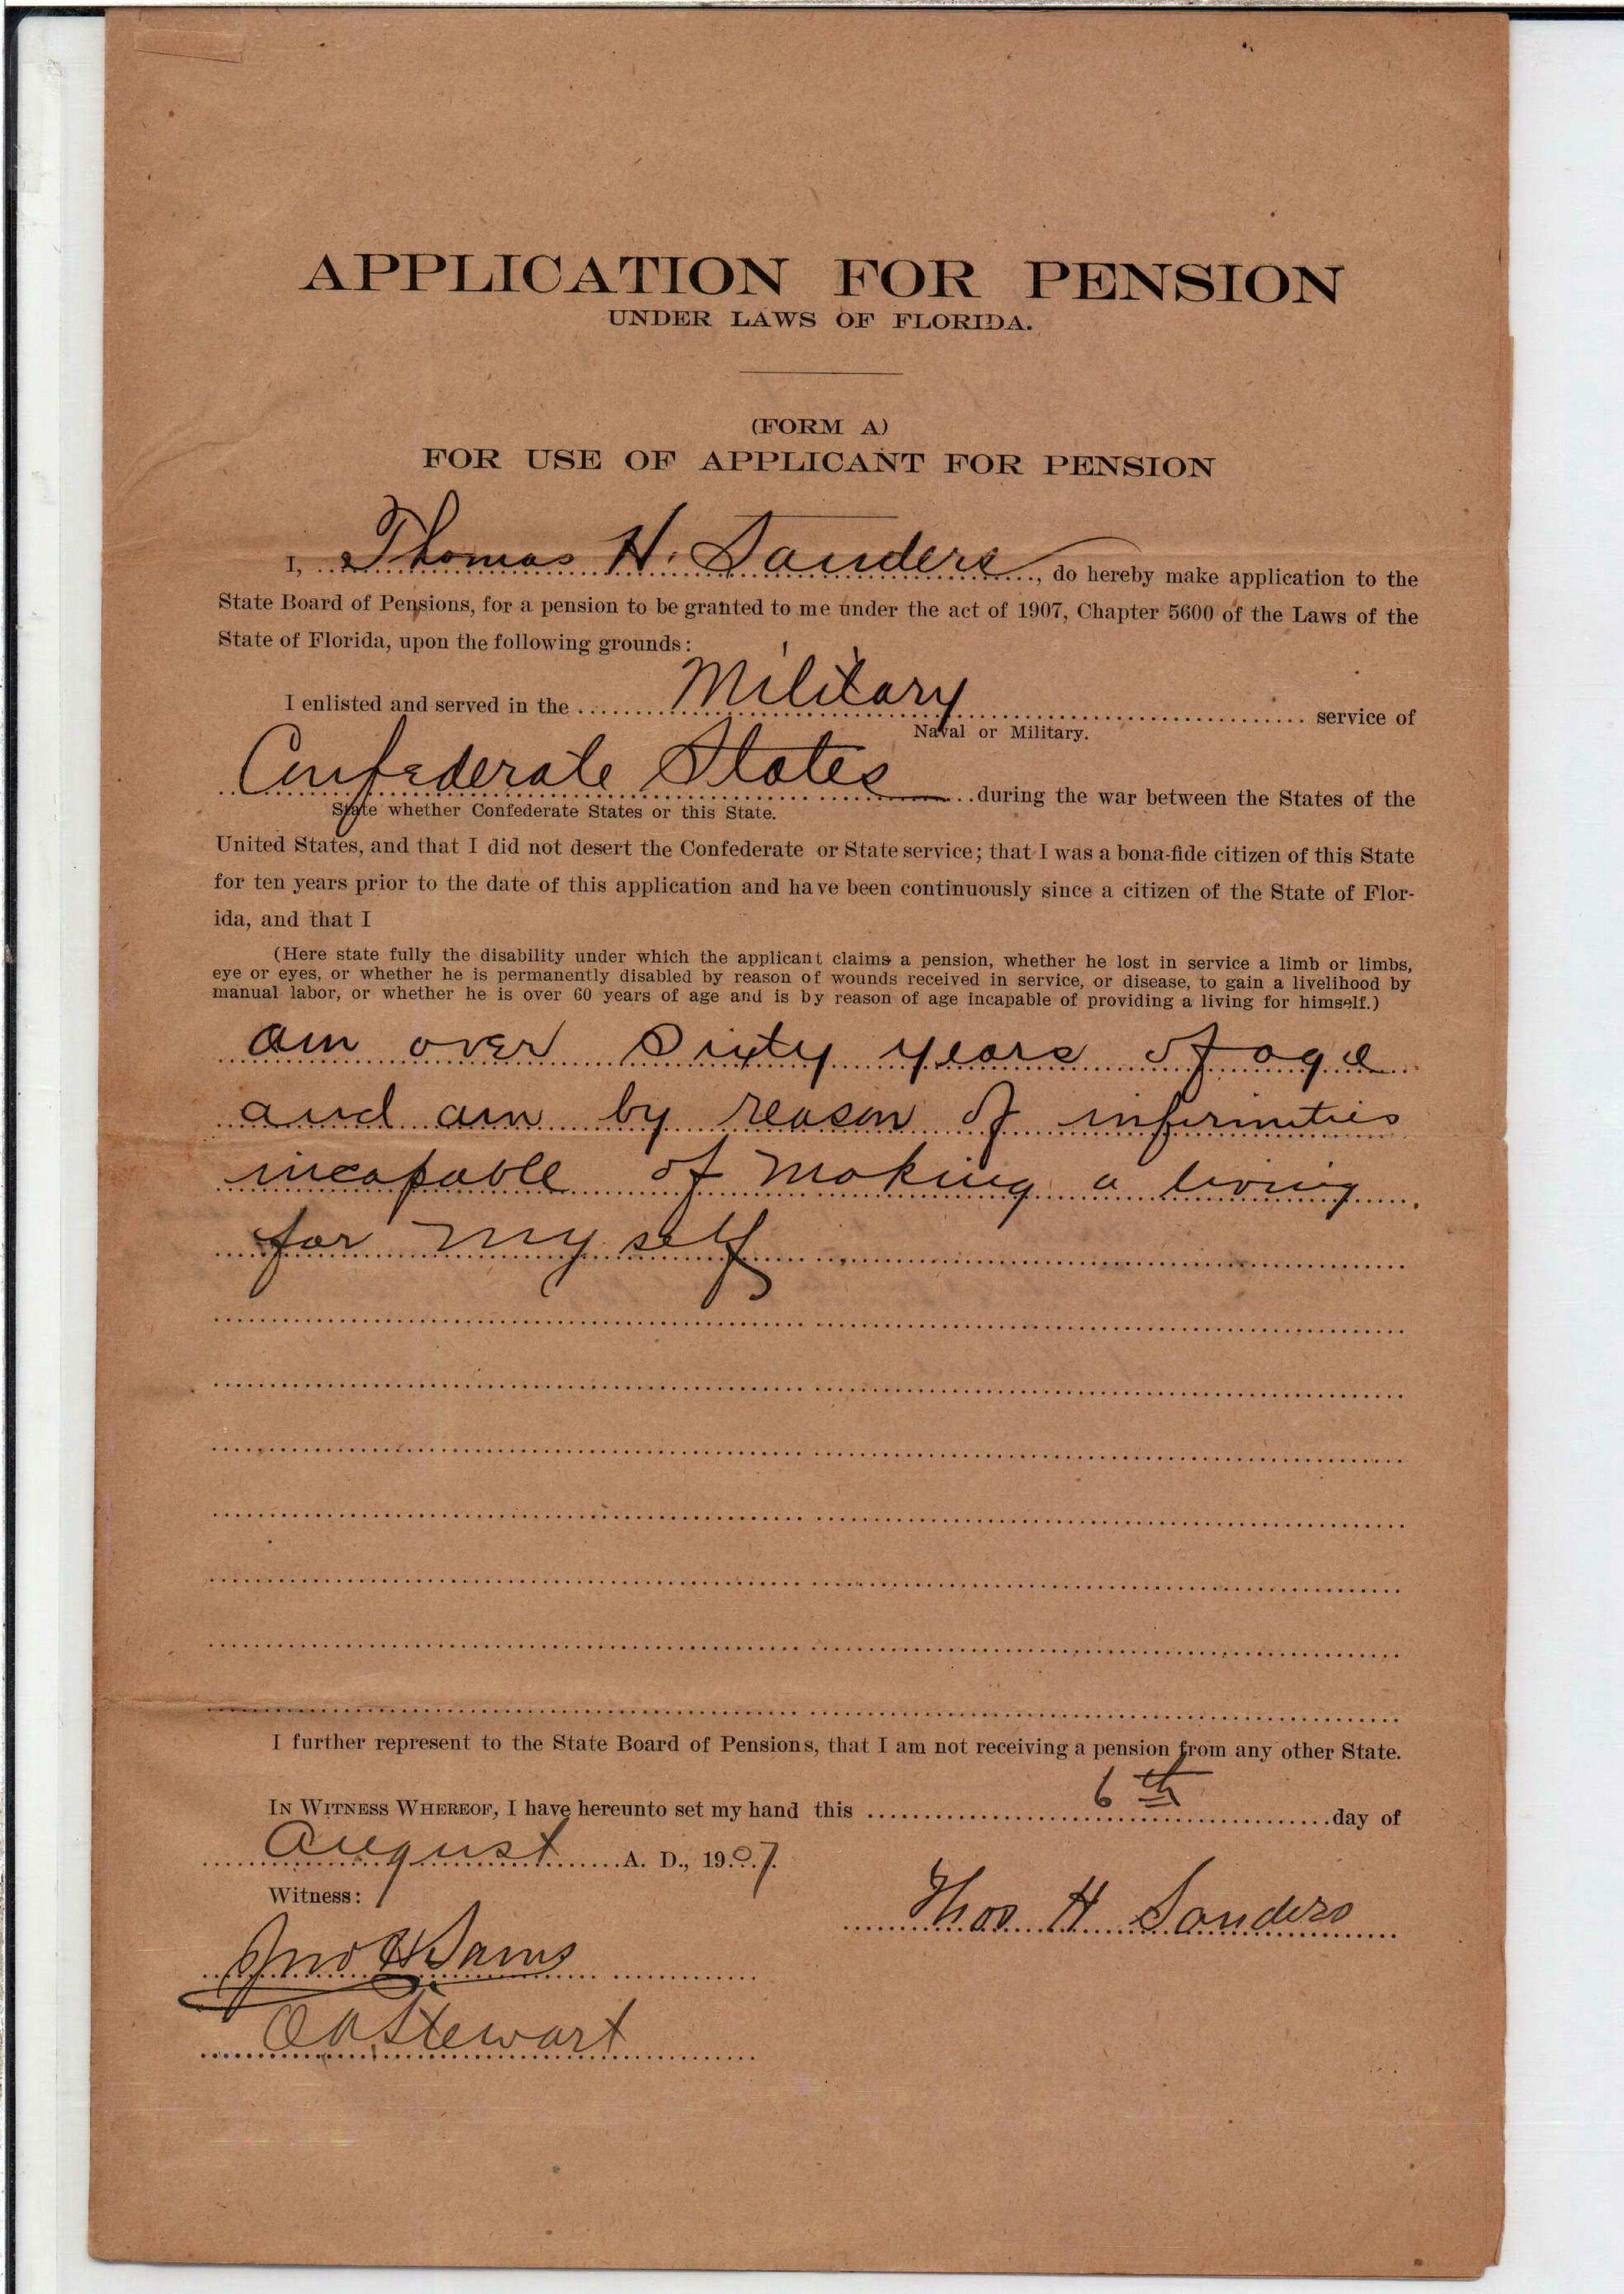 APPLICATION FOR PENSION
UNDER LAWS OF FLORIDA.
(FORM A)
FOR USE OF APPLICANT FOR PENSION
I, Thomas H. Sanders, do hereby make application to the
State Board of Pensions, for a pension to be granted to me under the act of 1907, Chapter 5600 of the Laws of the
State of Florida, upon the following grounds:
I enlisted and served in the Military service of
Naval or Military.
Confederate States during the war between the States of the
State whether Confederate States or this State.
United States, and that I did not desert the Confederate or State service; that I was a bona-fide citizen of this State
for ten years prior to the date of this application and have been continuously since a citizen of the State of Flor-
ida, and that I
(Here state fully the disability under which the applicant claims a pension, whether he lost in service a limb or limbs,
eye or eyes, or whether he is permanently disabled by reason of wounds received in service, or disease, to gain a livelihood by
manual labor, or whether he is over 60 years of age and is by reason of age incapable of providing a living for himself.)
am over Sixty years of age
and am by reason of infirmities
incapable of making a living
for my self
I further represent to the State Board of Pensions, that I am not receiving a pension from any other State.
IN WITNESS WHEREOF, I have hereunto set my hand this 6th day of
August A. D., 1907.
Witness:
Thos H Sanders
Jno
Stewart